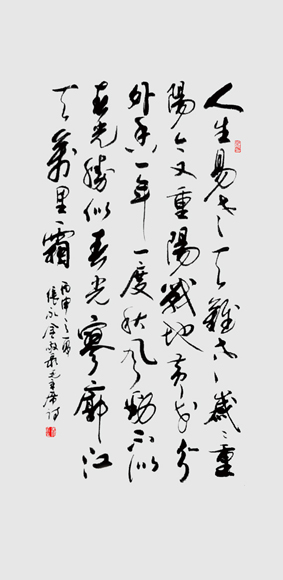 人生易老天難老歲〻重
陽今又重陽戰地黄花分
外香一年一度秋风勁不似
春光勝似春光寥廓江
天萬里霜
丙申之夏
張永金敬录毛主席詩